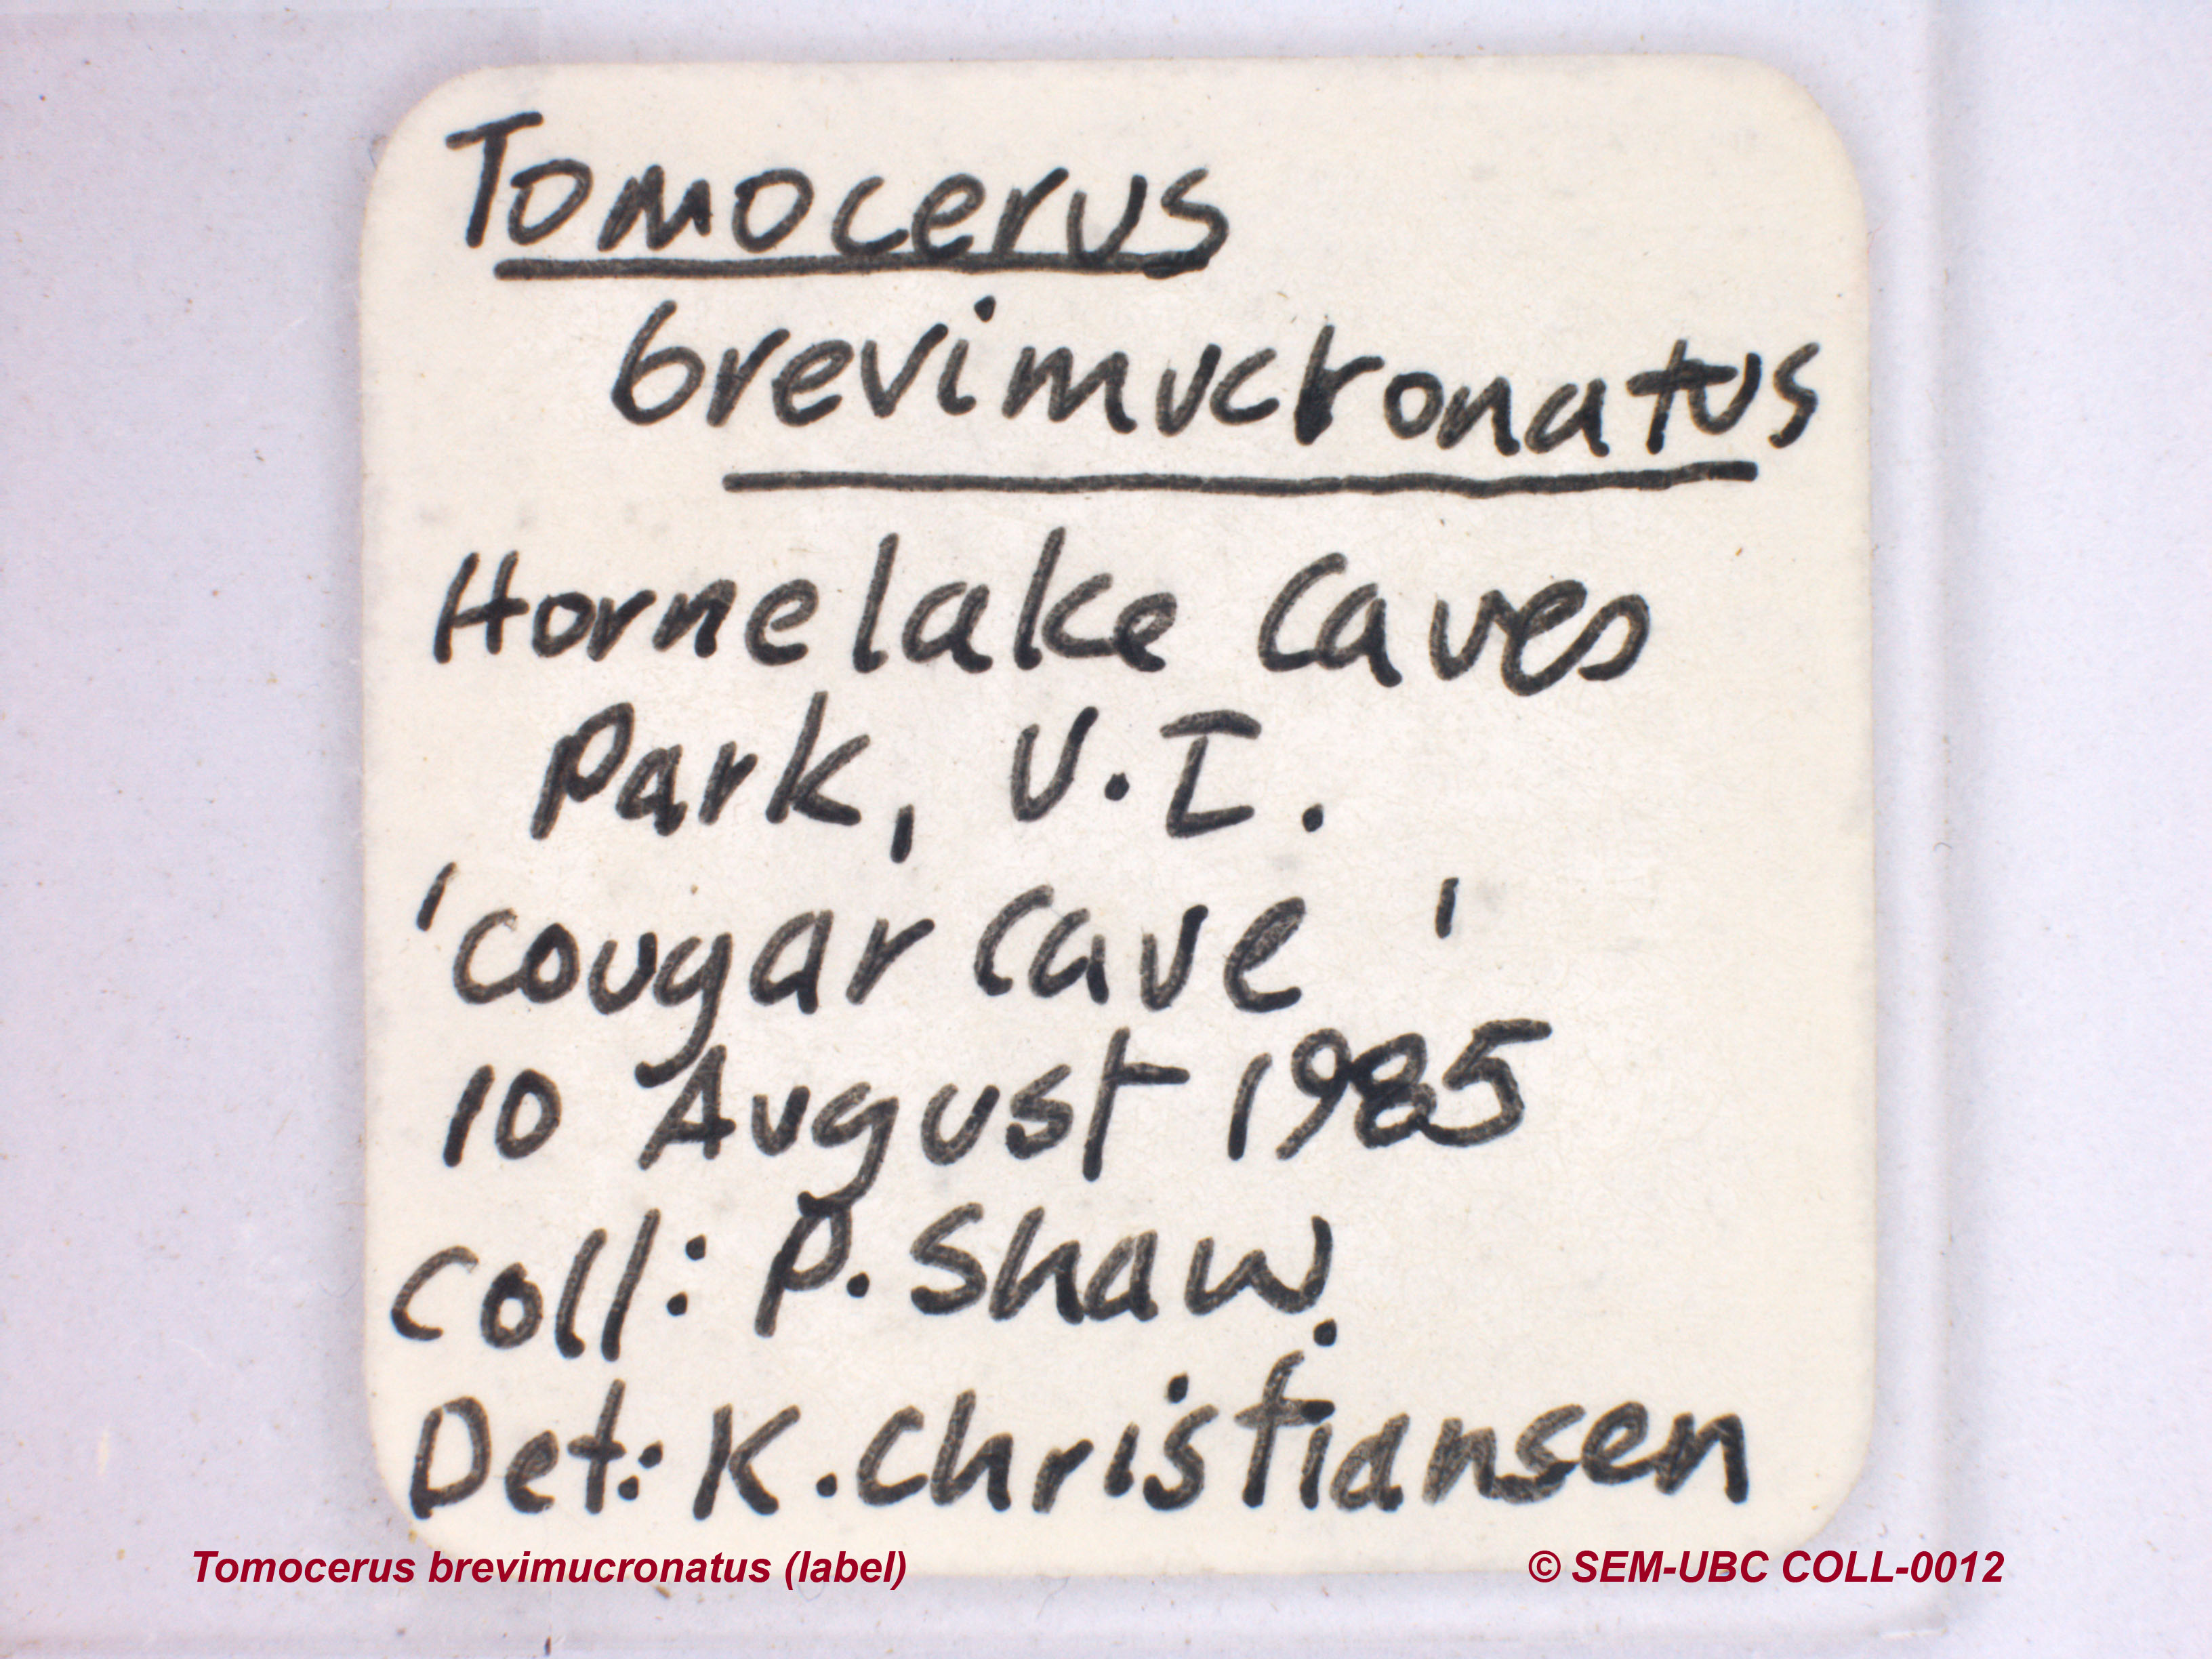 Tomocerus
brevimucronatus
Horne lake Caves
Park, V.I.
'Cougar Cave'
10 August 1985
Coll: P. Shaw.
Det: K. Christiansen
Tomocerus brevimucronatus (label)
© SEM-UBC COLL-0012